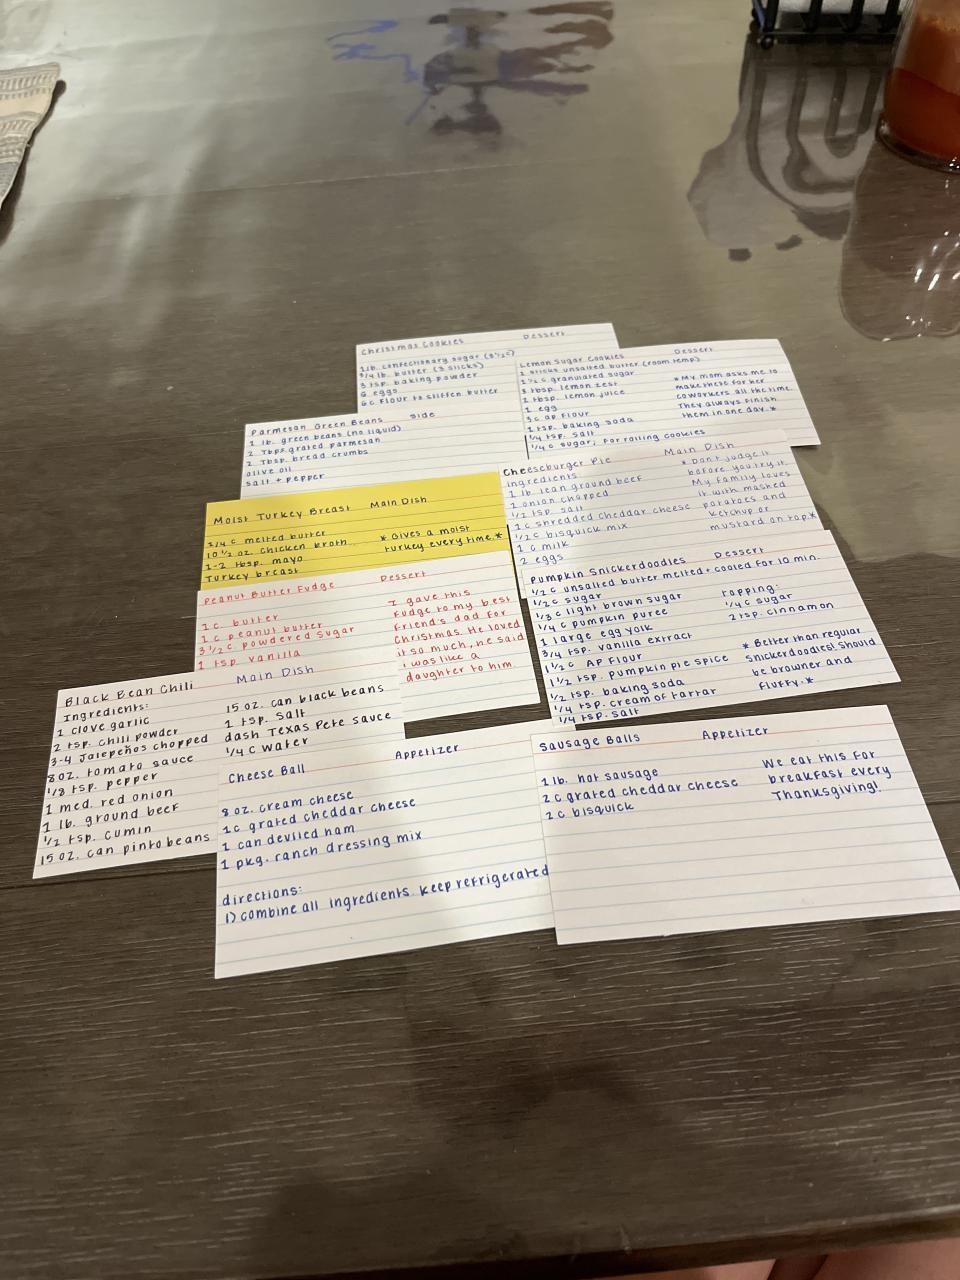 Christmas Cookies Dessert
1 lb. confectionary sugar (3 1/2 c)
3/4 lb. butter (3 sticks)
3 tsp. baking powder
6 eggs
6c flour to stiffen butter
Lemon Sugar Cookies Dessert
2 sticks unsalted butter (room temp)
1 1/2 c granulated sugar
1 tbsp. lemon zest
1 tbsp. lemon juice
1 egg
3c AP flour
1 tsp. baking soda
1/4 tsp. salt
1/4 c sugar, for rolling cookies
*My mom asks me to
make these for her
coworkers all the time.
They always finish
them in one day.*
Parmesan Green Beans side
1 lb. green beans (no liquid)
2 Tbps grated parmesan
2 Tbsp. bread crumbs
olive oil
salt + pepper
Cheeseburger Pie Main Dish
ingredients
1 lb. lean ground beef
1 onion chopped
1/2 tsp. salt
1c shredded cheddar cheese
1/2c bisquick mix
1 c milk
2 eggs
*Don't judge it
before you try it.
My family loves
it with mashed
potatoes and
ketchup or
mustard on top.*
Moist Turkey Breast Main Dish
3/4 c melted butter
10 1/2 oz. chicken broth
1-2 tbsp. mayo
Turkey breast
*Gives a moist
turkey every time.*
Pumpkin Snickerdoodles Dessert
1/2 c unsalted butter melted + cooled for 10 min.
1/2 c sugar
1/3 c light brown sugar
1/4 c pumpkin puree
1 large egg yolk
3/4 tsp. vanilla extract
1 1/2 c AP flour
1 1/2 tsp. pumpkin pie spice
1/2 tsp. baking soda
1/4 tsp. cream of tartar
1/4 tsp. salt
Topping:
1/4 c sugar
2 tsp. cinnamon
*Better than regular
snickerdoodles! Should
be browner and
fluffy.*
Peanut Butter Fudge Dessert
1 c. butter
1 c peanut butter
3 1/2 c powdered sugar
1 tsp. vanilla
I gave this
fudge to my best
friend's dad for
christmas. He loved
it so much, he said
i was like a
daughter to him
Black Bean Chili Main Dish
Ingredients:
1 clove garlic
2 tsp. chili powder
3-4 Jalepeños chopped
8 oz. tomato sauce
1/8 tsp. pepper
1 med. red onion
1 lb. ground beef
1/2 tsp. cumin
15 oz. can pinto beans
15 oz. can black beans
1 tsp. salt
dash Texas Pete sauce
1/4 c water
Cheese Ball Appetizer
8 oz. cream cheese
1c grated cheddar cheese
1 can deviled ham
1 pkg. ranch dressing mix
directions:
1) combine all ingredients. keep refrigerated
Sausage Balls Appetizer
1 lb. hot sausage
2 c grated cheddar cheese
2 c bisquick
We eat this for
breakfast every
Thanksgiving!